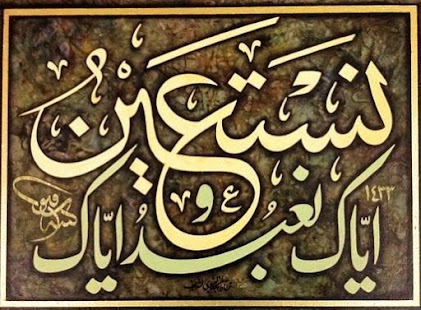 اياك نعبد و اياك
نستعين
١٤٣٣